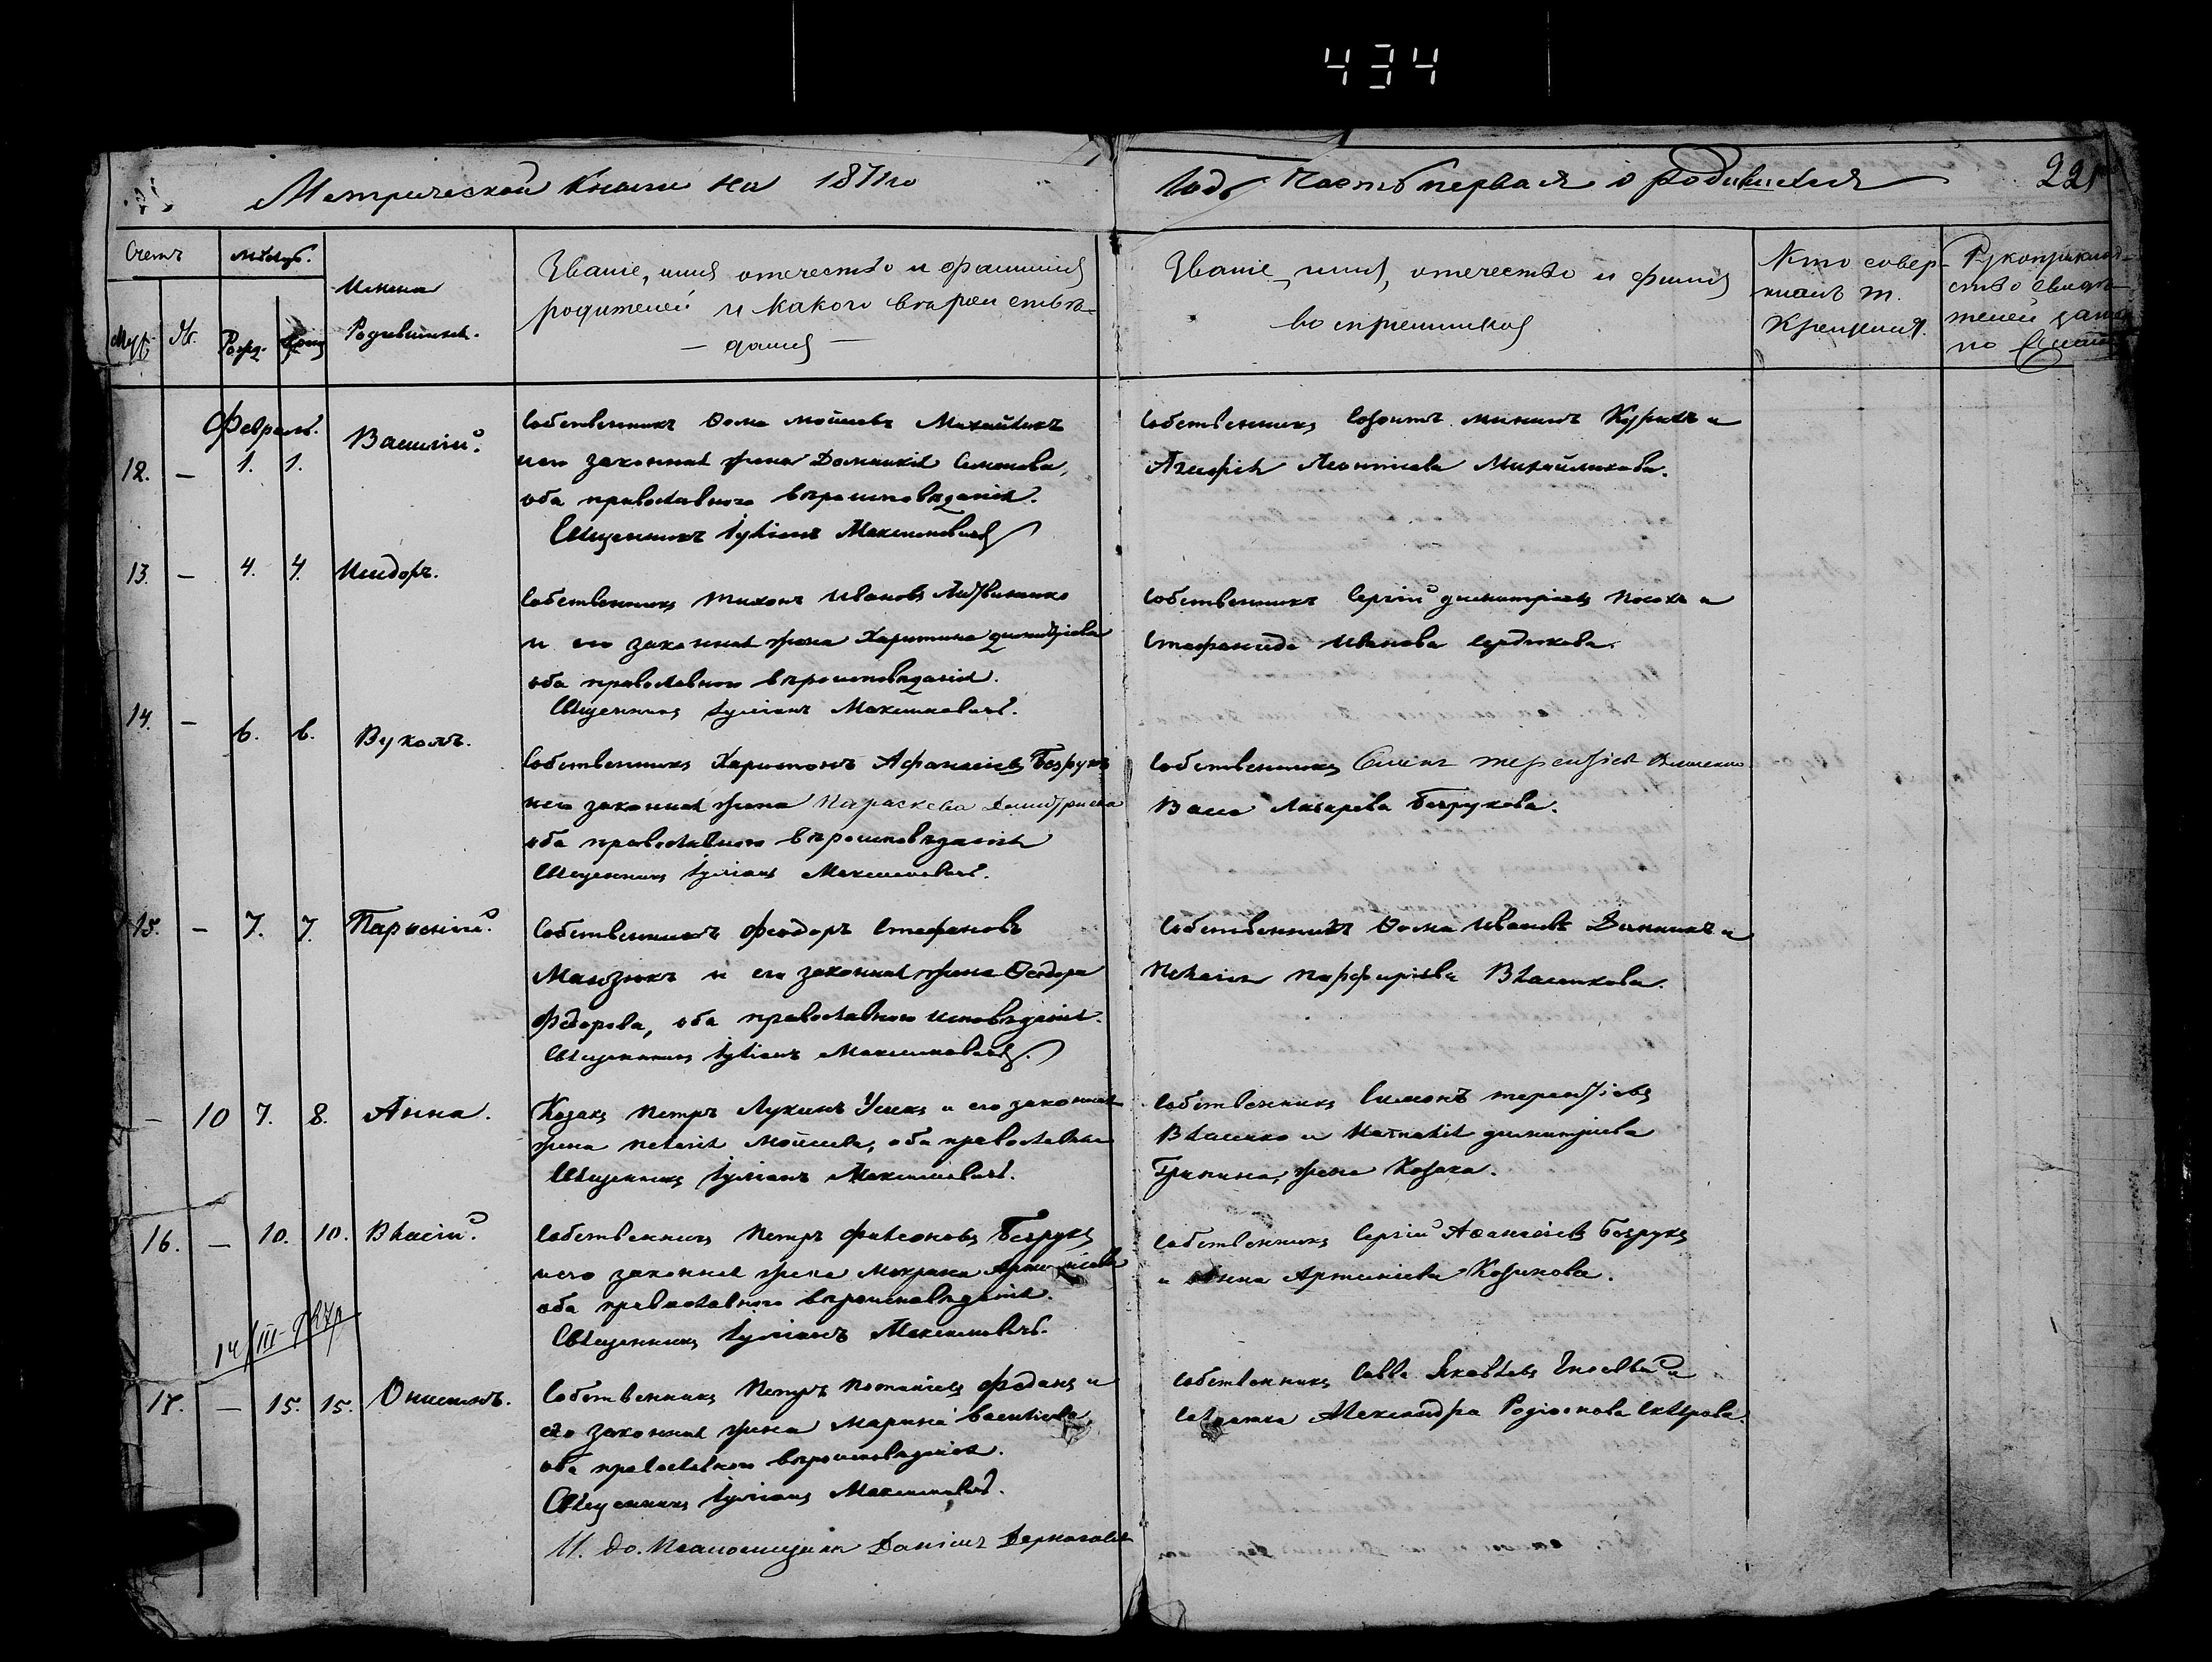 434
Метрической книги на 1871го
Годъ Часть первая о родившихся
221
Счетъ
Муж.
Ж.
Рожд.
Имена
Родившихся.
Званіе, имя отечество и фамилія
родителей и какого вѣроисповѣ-
дания
Званіе, имя, отечество и фамил
воспріемниковъ
Кто совер-
шалъ т.
Крещенія.
Рукоприклад-
ство свидѣ-
телей записи
по
Февраль.
12. — 1. 1. Василій.
Собственникъ Ѳома Мойсеевъ Михайликъ
и его законная жена Домникія Семенова,
оба православного вѣроисповѣданія.
Священникъ Іуліанъ Максимовичъ
Собственникъ Созонтъ Мининъ и
Агафія Леонтіева Михайликова.
13. — 4. 4. Исидоръ.
Собственникъ Тихонъ Ивановъ Литвиненко
и его законная жена Харитина Димитріева
оба православного вѣроисповѣданія.
Священникъ Іуліанъ Максимовичъ.
Собственникъ Сергій Димитріевъ и
Стефанида Иванова Сердюкова.
14. — 6. 6. Вуколъ.
Собственникъ Харитонъ Афанасіевъ Безрукъ
и его законная жена Параскева Димитриева
оба православного вѣроисповѣданія
Священникъ Іуліанъ Максимовичъ.
Собственникъ Симонъ Терентіевъ
Васса Лазарева Безрукова.
15. — 7. 7. Парѳеній.
Собственникъ Феодоръ Стефановъ
и его законная жена Ѳеодора
Федорова, оба православного исповѣданія.
Священникъ Іуліанъ Максимовичъ.
Собственникъ Ѳома Ивановъ и
Пелагія Порфиріева Власенкова.
— 10 7. 8. Анна.
Козакъ Петръ Лукинъ Усикъ и его законная
жена Пелагія Мойсеева, оба православные
Священникъ Іуліанъ Максимовичъ.
Собственникъ Симонъ Терентіевъ
Власенко и Наталія Димитріева
Гринина, жена Козака.
16. — 10. 10. Власій.
Собственникъ Петръ Филимоновъ Безрукъ
и его законная жена Мокрина
оба православного вѣроисповѣданія.
Священникъ Іуліанъ Максимовичъ.
Собственникъ Сергій Аѳанасіевъ Безрукъ
и Анна Артеміева
14/III-927р
17. — 15. 15. Онисимъ.
Собственникъ Петръ Потапіевъ и
его законная жена Марина Василіева
оба православного вѣроисповѣданія.
Священникъ Іуліанъ Максимовичъ.
И. до. Псаломщика Даніилъ
Собственникъ Савва Яковлевъ и
Александра Родіонова